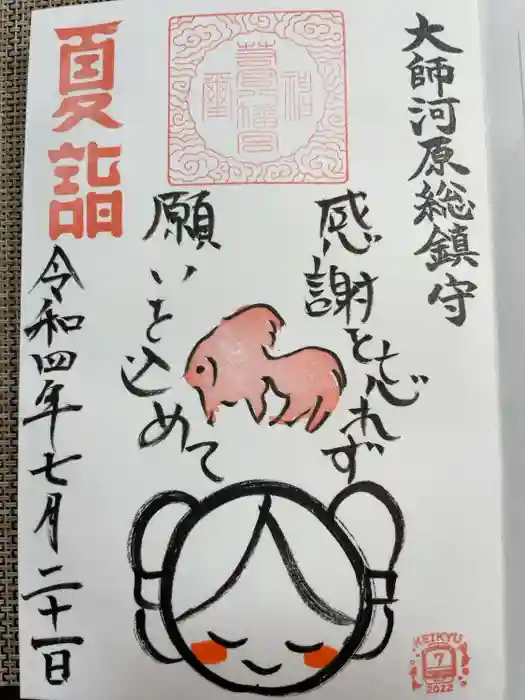 大師河原総鎮守
感謝を忘れず
願いを込めて
夏詣
令和四年七月二十一日
KEIKYU
7
2022